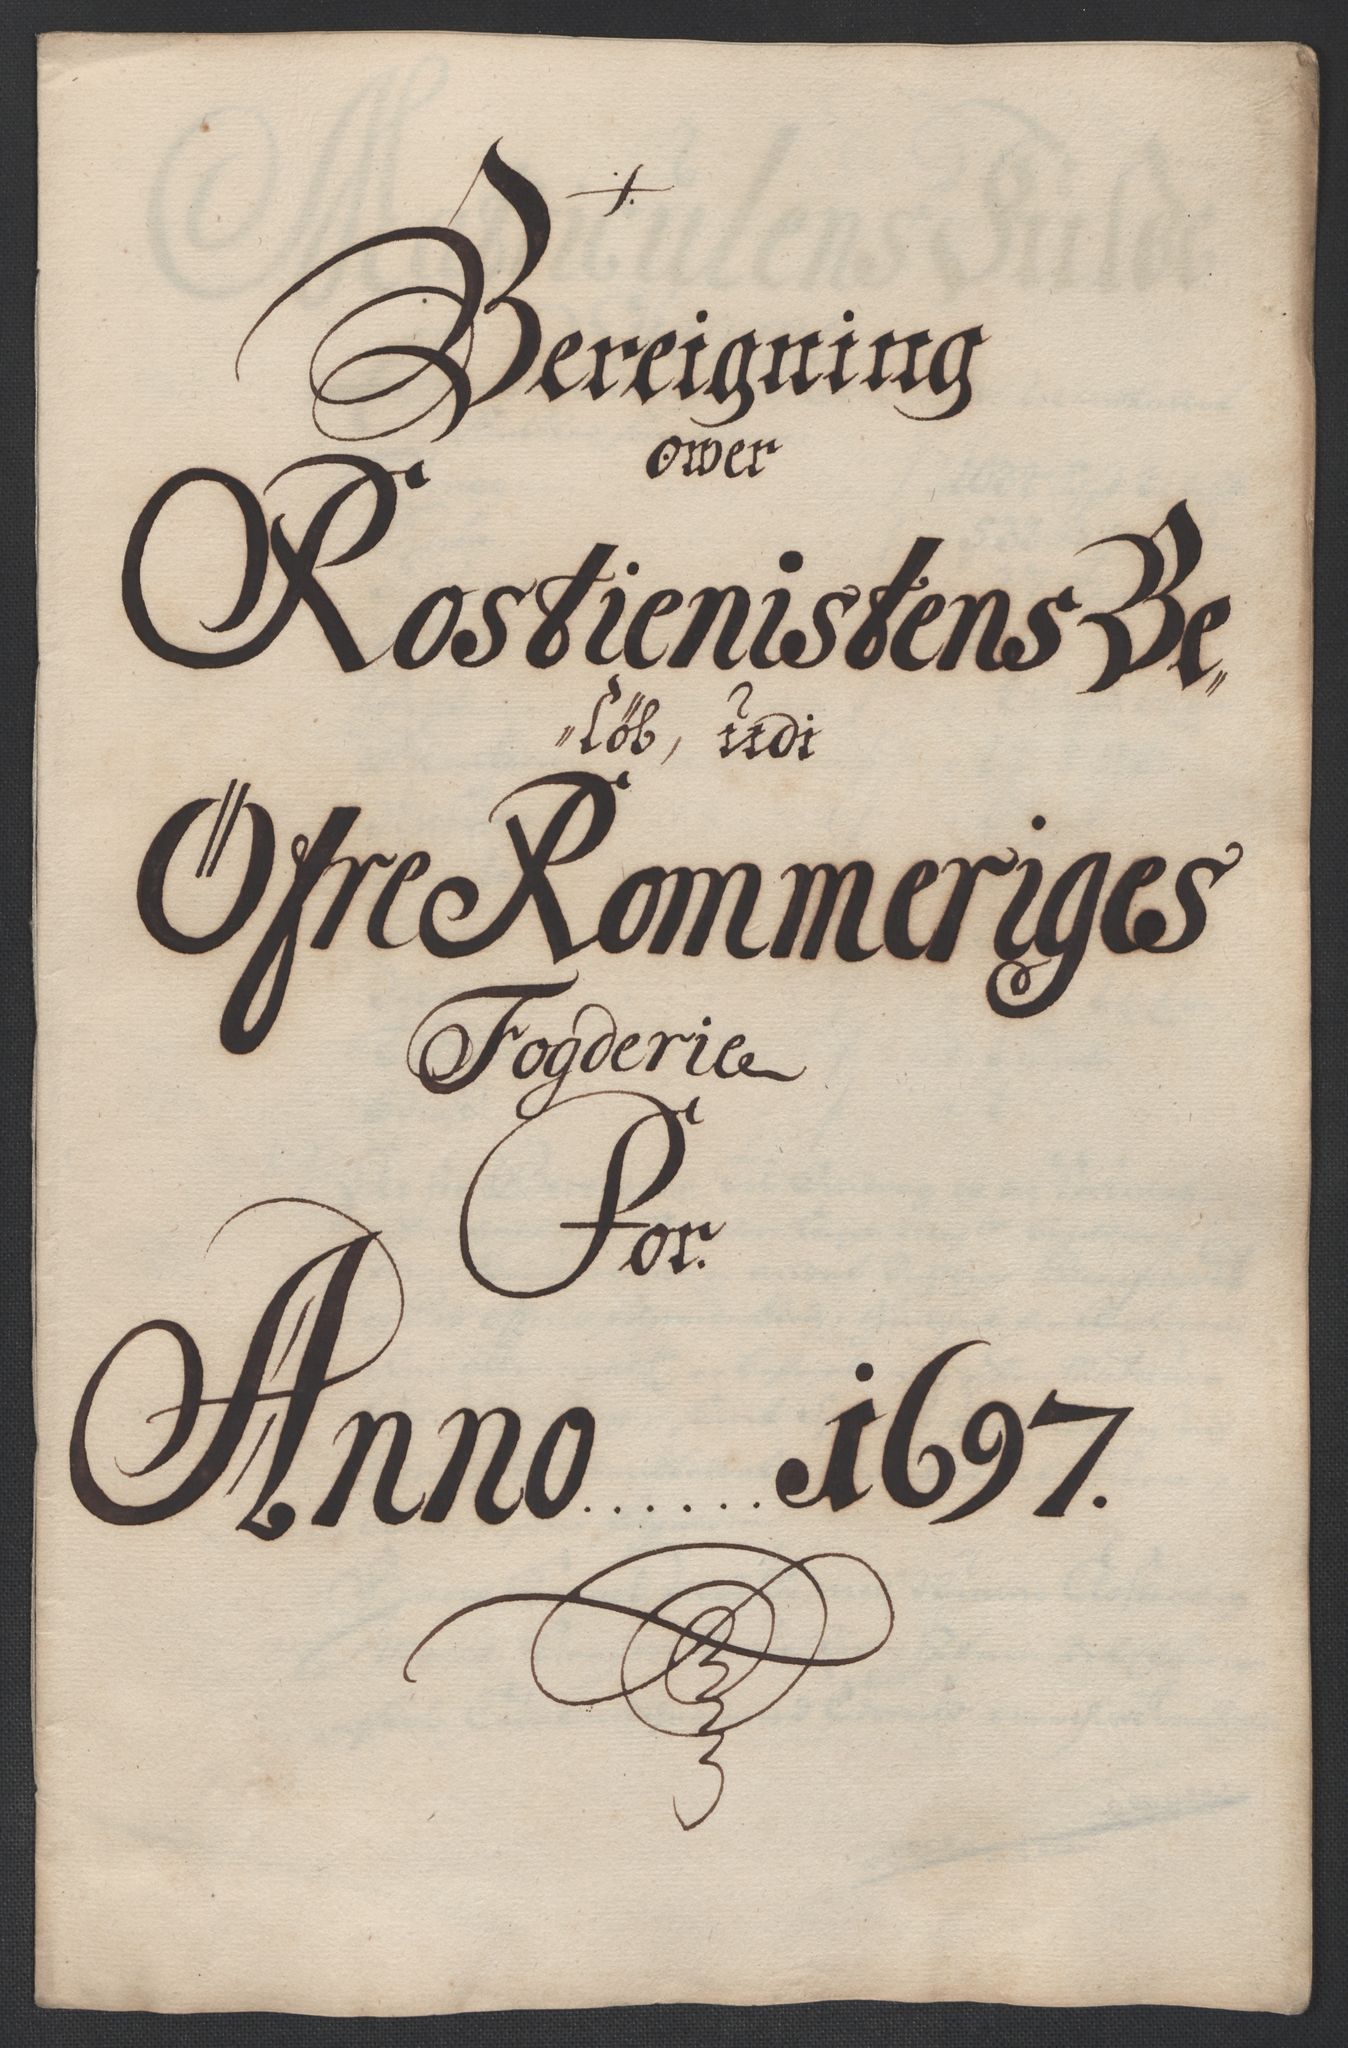 Bereigning
ower
Rostienistens Be„
„löb, udi
Öfre Rommeriges
Fogderie
For.
Anno......1697.